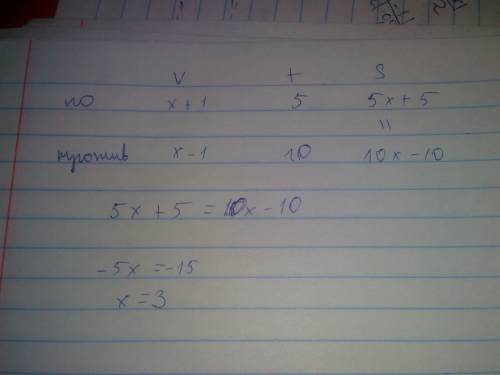 v t s
по x+1 5 5x+5
=
против x-1 10 10x-10
5x+5=10x-10
-5x=-15
x=3